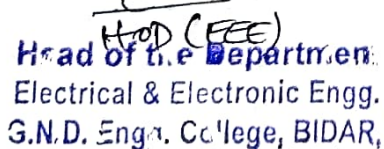 HOD (EEE)
Head of the Department
Electrical & Electronic Engg.
G.N.D. Engg. College, BIDAR,